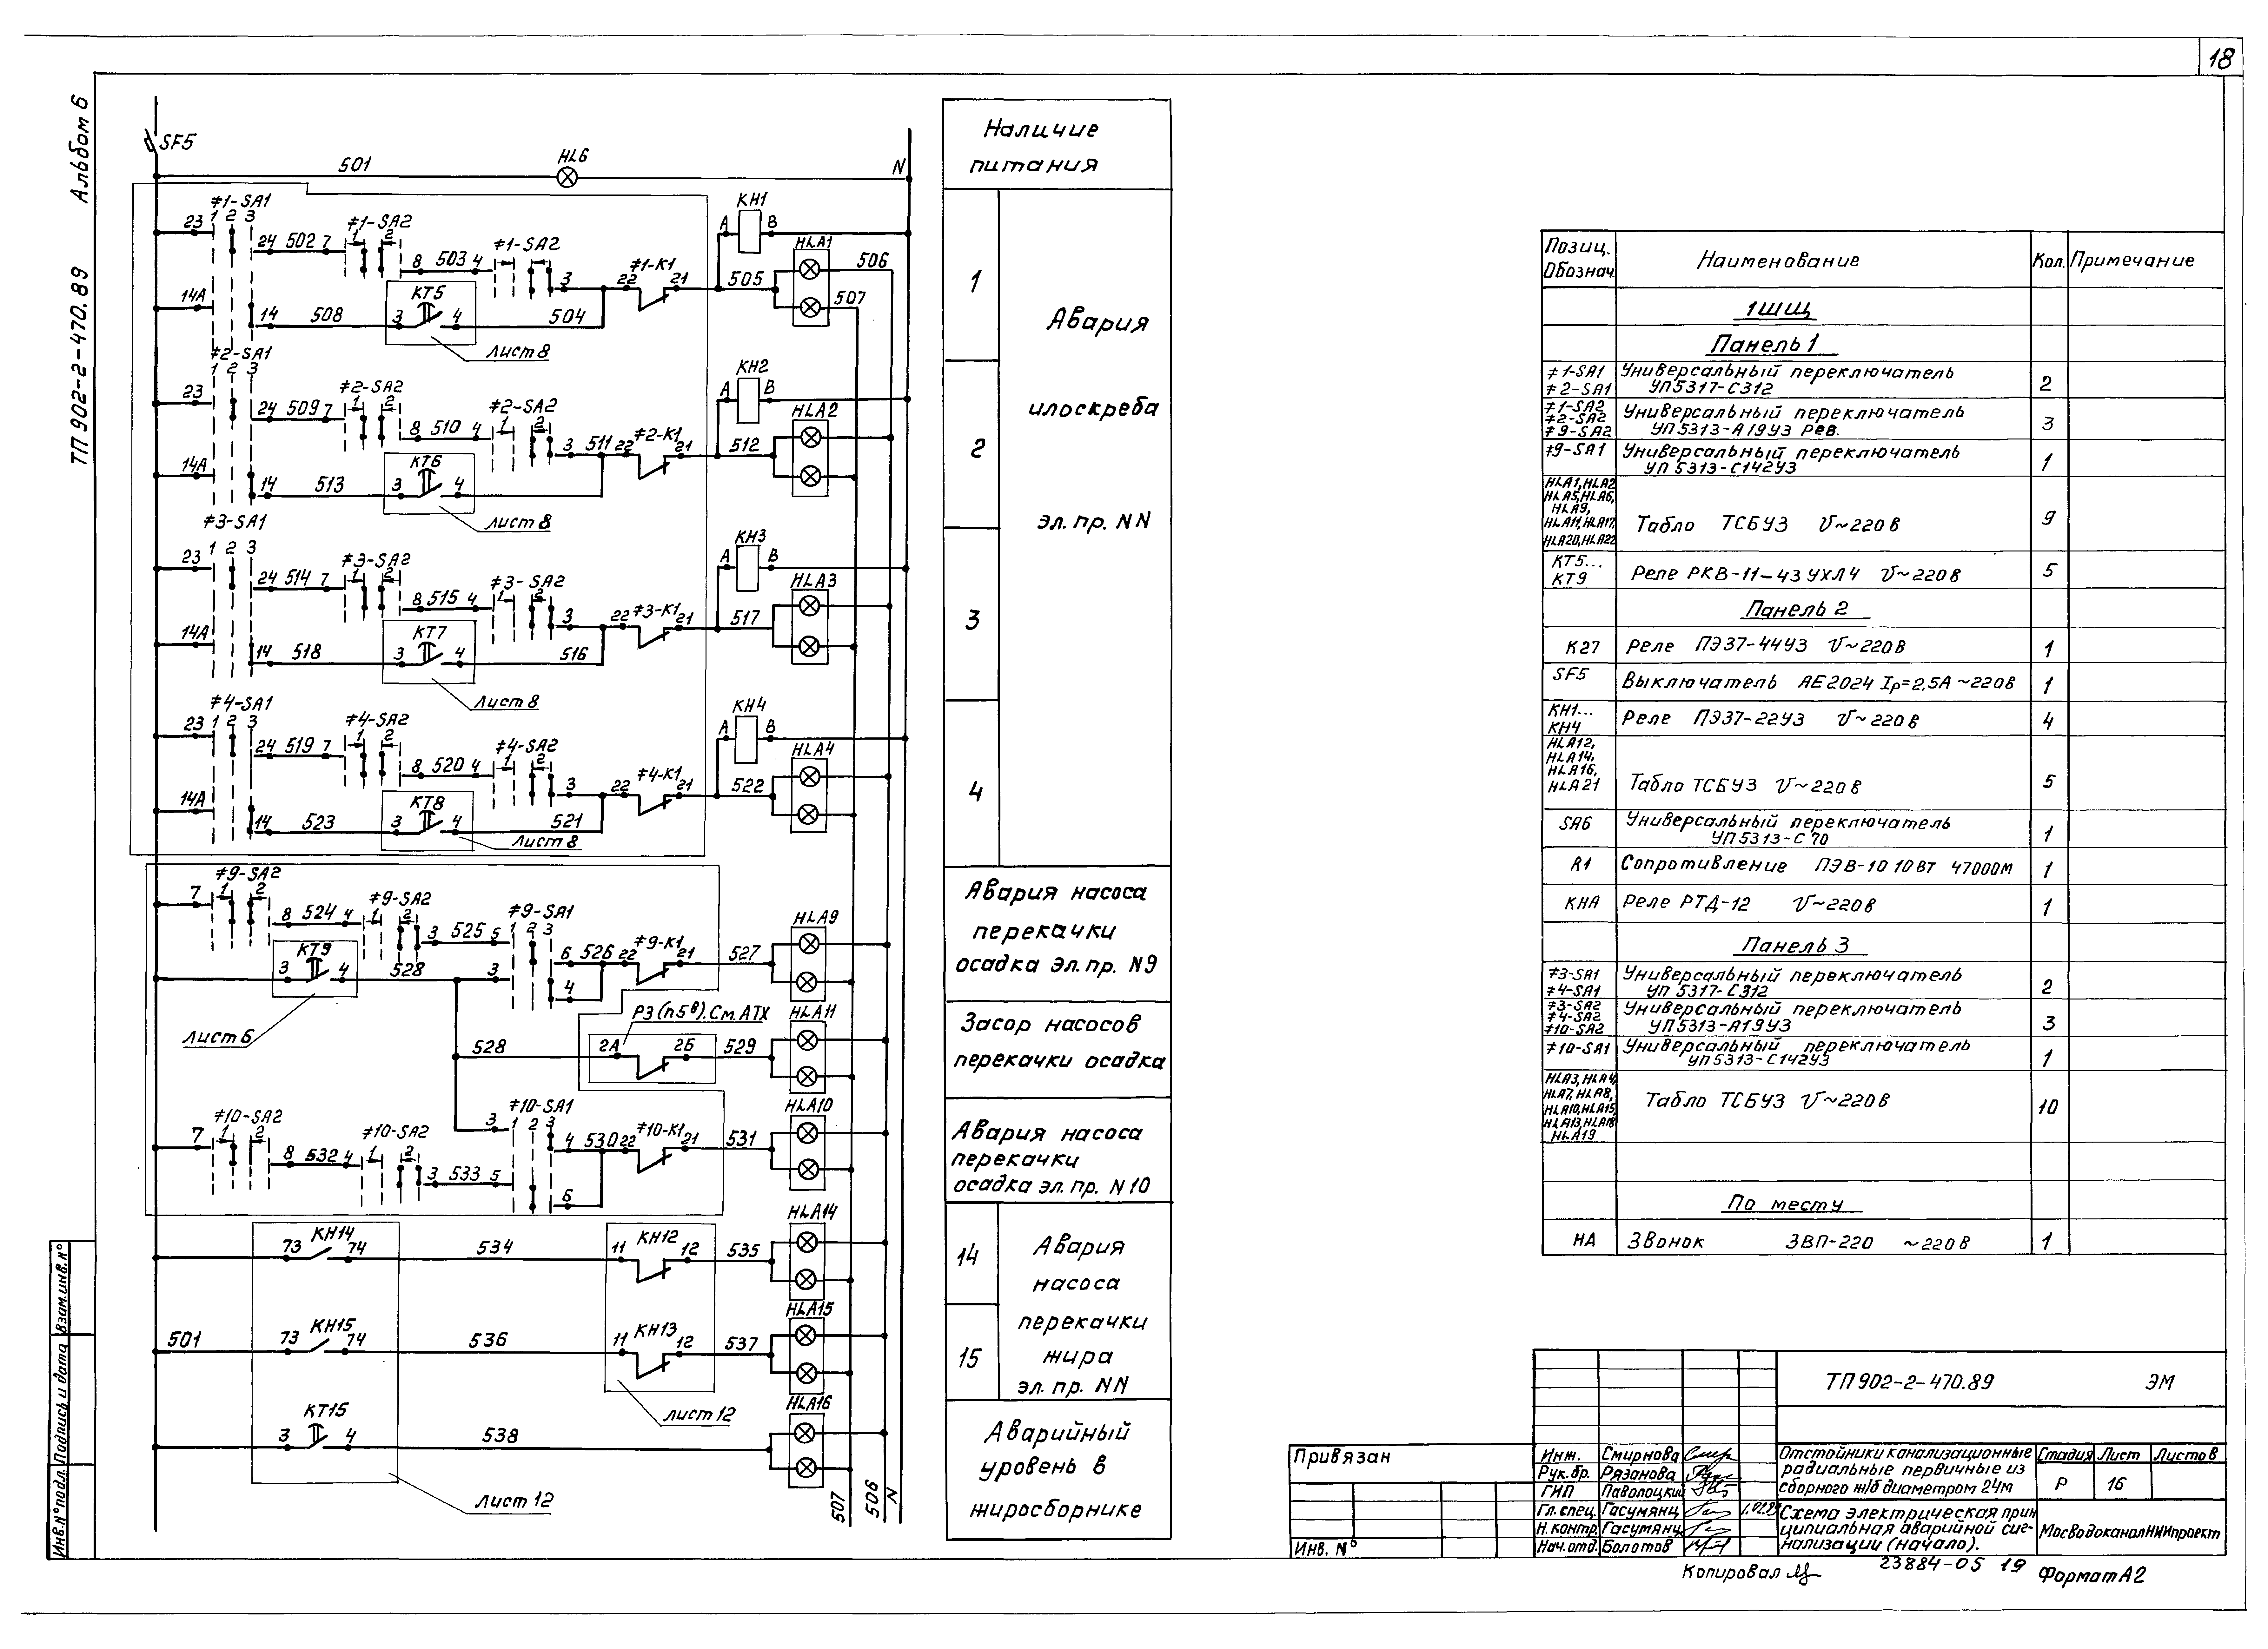 18
ТП 902-2-470.89 Альбом 6
SF5
501 HL6 N
≠1-SA1
23 1 2 3
24 502 7
≠1-SA2
1 2
8 503 4
≠1-SA2
3
22 ≠1-К1 21
КН1
А В
505
HLA1
506
507
14А
14 508 3 КТ5 4 504
Лист 8
≠2-SA1
1 2 3
23
24 509 7
≠2-SA2
1 2
8 510 4
≠2-SA2
1 2
3 511 22 ≠2-К1 21
КН2
А В
512
HLA2
14А
14 513 3 КТ6 4
Лист 8
≠3-SA1
23 1 2 3
24 514 7
≠3-SA2
1 2
8 515 4
≠3-SA2
1 2
3
22 ≠3-К1 21
КН3
А В
517
HLA3
14А
14 518 3 КТ7 4 516
Лист 8
≠4-SA1
23 1 2 3
24 519 7
≠4-SA2
1 2
8 520 4
≠4-SA2
1 2
3
22 ≠4-К1 21
КН4
А В
522
HLA4
14А
14 523 3 КТ8 4 521
Лист 8
≠9-SA2
7 1 2
8 524 4
≠9-SA2
1 2
3 525 5
≠9-SA1
1 2 3
6 526 22 ≠9-К1 21
527
HLA9
3 КТ9 4 528
3
4
Лист 6
Р3 (п5в). См. АТХ
528 2А 2Б 529
HLA11
≠10-SA2
7 1 2
8 532 4
≠10-SA2
1 2
3 533 5
≠10-SA1
3 1 2 3
4 530 22 ≠10-К1 21
531
HLA10
6
73 КН14 74 534 11 КН12 12 535
HLA14
501 73 КН15 74 536 11 КН13 12 537
HLA15
Лист 12
3 КТ15 4 538
HLA16
Лист 12
507 506 N
Наличие
питания
1
2
3
4
Авария
илоскреба
эл. пр. NN
Авария насоса
перекачки
осадка эл. пр. N9
Засор насосов
перекачки осадка
Авария насоса
перекачки
осадка эл. пр. N10
14
15
Авария
насоса
перекачки
жира
эл. пр. NN
Аварийный
уровень в
жиросборнике
Позиц. Обознач. Наименование Кол. Примечание
1ШЩ
Панель 1
≠1-SA1 ≠2-SA1 Универсальный переключатель УП5317-С312 2
≠1-SA2 ≠2-SA2 ≠9-SA2 Универсальный переключатель УП5313-А19У3 Рев. 3
≠9-SA1 Универсальный переключатель УП 5313-С142У3 1
HLA1, HLA2 HLA5, HLA6, HLA9, HLA11, HLA17, HLA20, HLA22 Табло ТСБУЗ U~220 В 9
КТ5... КТ9 Реле РКВ-11-43 УХЛ4 U~220В 5
Панель 2
К27 Реле ПЭ37-44У3 U~220В 1
SF5 Выключатель АЕ2024 Iр=2,5А ~220В 1
КН1... КН4 Реле ПЭ37-22У3 U~220В 4
HLA12, HLA14, HLA16, HLA21 Табло ТСБУЗ U~220В 5
SA6 Универсальный переключатель УП5313-С70 1
R1 Сопротивление ПЭВ-10 10Вт 4700Ом 1
КНА Реле РТД-12 U~220В 1
Панель 3
≠3-SA1 ≠4-SA1 Универсальный переключатель УП 5317-С312 2
≠3-SA2 ≠4-SA2 ≠10-SA2 Универсальный переключатель УП5313-А19У3 3
≠10-SA1 Универсальный переключатель УП5313-С142У3 1
HLA3, HLA4, HLA7, HLA8, HLA10, HLA15, HLA13, HLA18 HLA19 Табло ТСБУЗ U~220В 10
По месту
НА Звонок ЗВП-220 ~220В 1
ТП 902-2-470.89 ЭМ
Привязан
Инв. №
Инж. Смирнова
Рук.бр. Рязанова
ГИП Паволоцкий
Гл.спец. Гасумянц
Н.контр. Гасумянц
Нач.отд. Болотов
Отстойники канализационные
радиальные первичные из
сборного ж/б диаметром 24м
Стадия Лист Листов
Р 16
Схема электрическая прин
ципиальная аварийной сиг-
нализации (начало).
МосводоканалНИИпроект
Копировал
23884-05 19
Формат А2
Инв. № подл. Подпись и дата Взам. инв. №